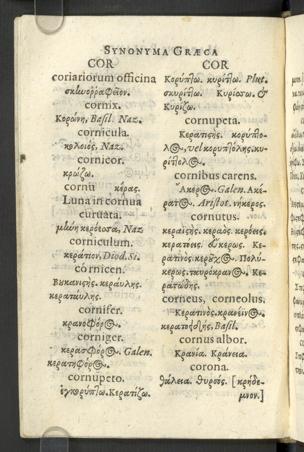 SYNONYMA GRÆCA
COR
coriariorum officina
σκινορραφεῖον.
cornix.
Κορώνη, Basil. Naz.
cornicula.
κολοιός, Naz.
cornicor.
κρώζω.
cornu κέρας.
Luna in cornua
curuata.
μήνη κερόεσσα, Naz
corniculum.
κεράτιον, Diod. Si.
cornicen.
Βυκανιςής. κεραύλης.
κεραταύλης.
cornifer.
κρανοφόρ⊙.
corniger.
κερασφόρ⊙. Galen.
κερατηφόρ⊙.
cornupeto.
ἐγκορύπτω. Κερατίζω.
COR
Κορύπτω. κυρίτλω. Plut.
σκυρίτλω. Κυρίσσω. &
Κυρίζω.
cornupeta.
Κερατιςής. κορύπτο-
λ⊙, vel κορυπτόλης. κυ-
ρίτλολ⊙.
cornibus carens.
Ἄκερ⊙. Galen. Ἀκέ-
ρατ⊙. Aristot. νήκερος.
cornutus.
κεραϊςής. κεραός. κερόεις.
κερατόεις. εὔκερως. Κε-
Πολυ-
κέρως. ταυρόκραν⊙. Κε-
ρατώδης.
corneus, corneolus.
Κερατινός. κρανέιν⊙.
Basil.
cornus albor.
Κρανία. Κράνεια.
corona.
θάλεια. Θυρσός. [κρήδε-
μνον.]